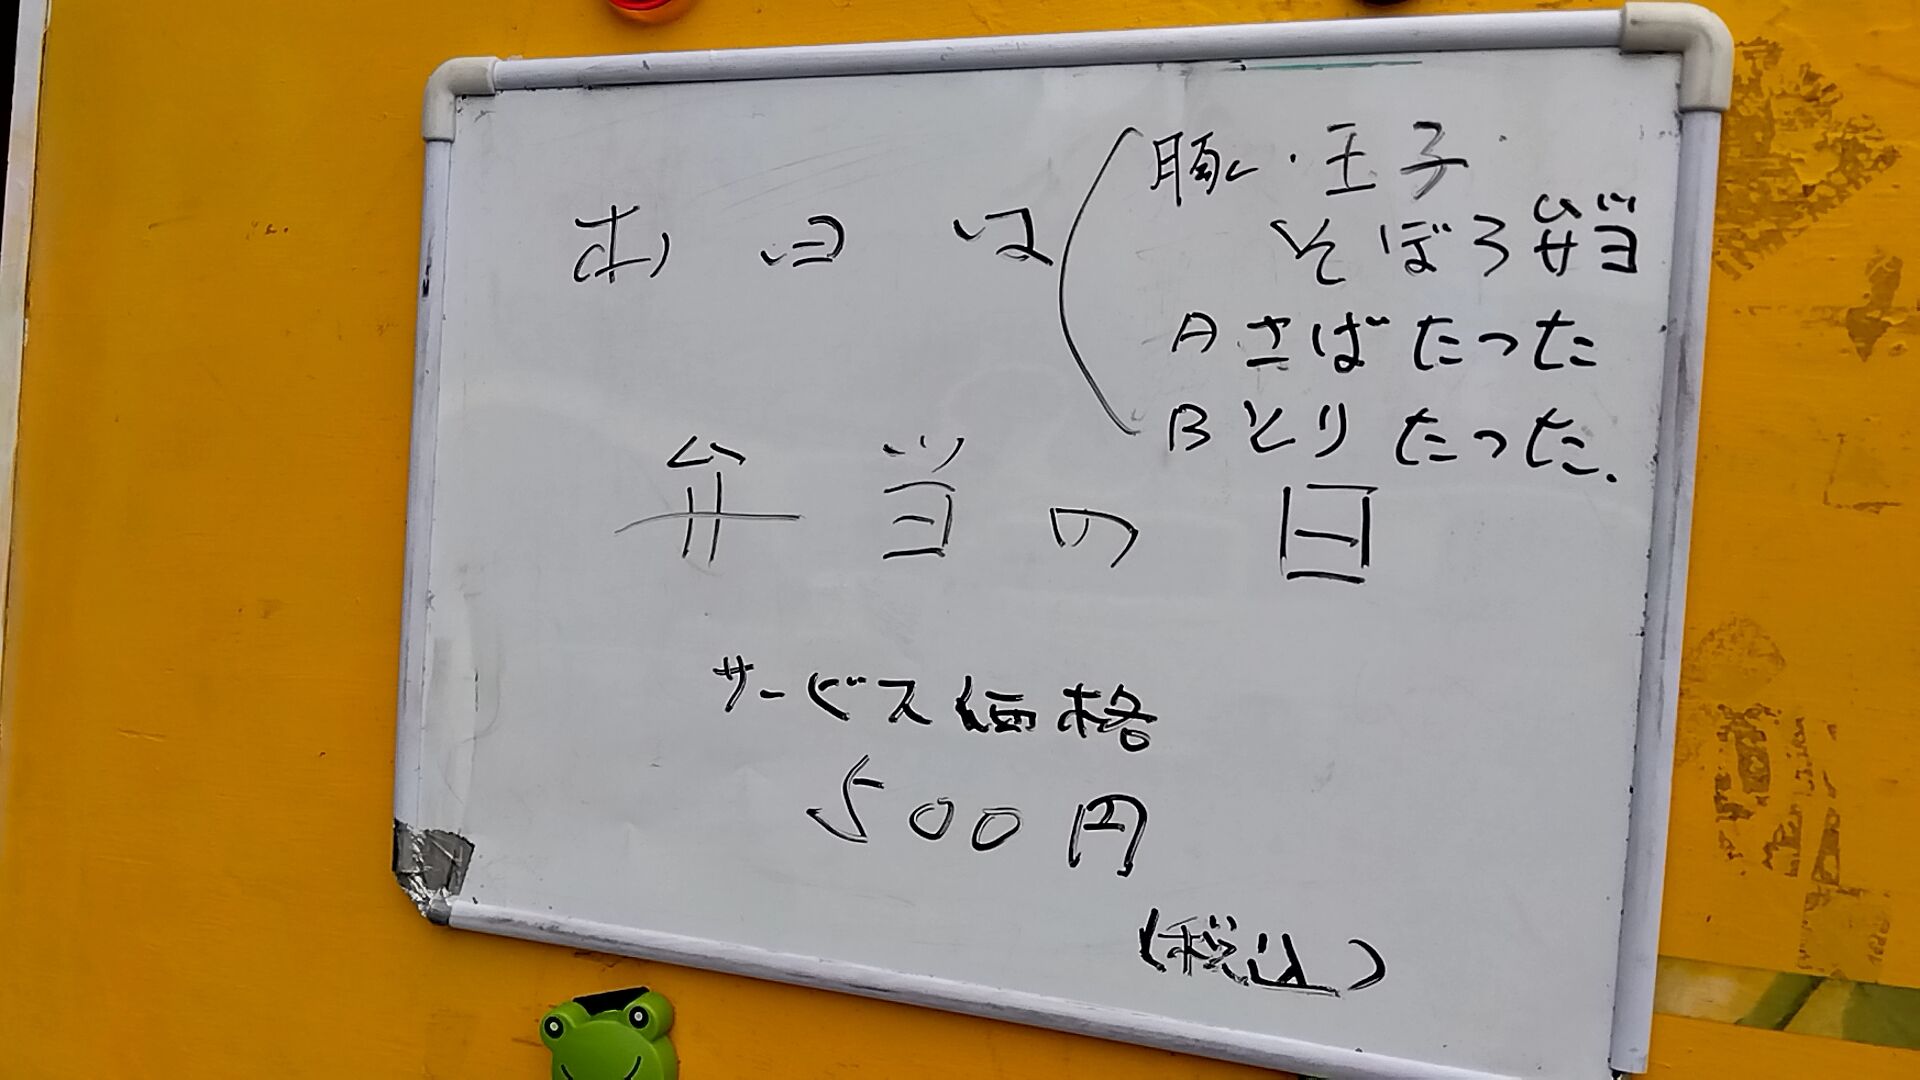 本日は
豚・玉子
そぼろ弁当
Aさばたつた
Bとりたつた.
弁当の日
サービス価格
500円
(税込)